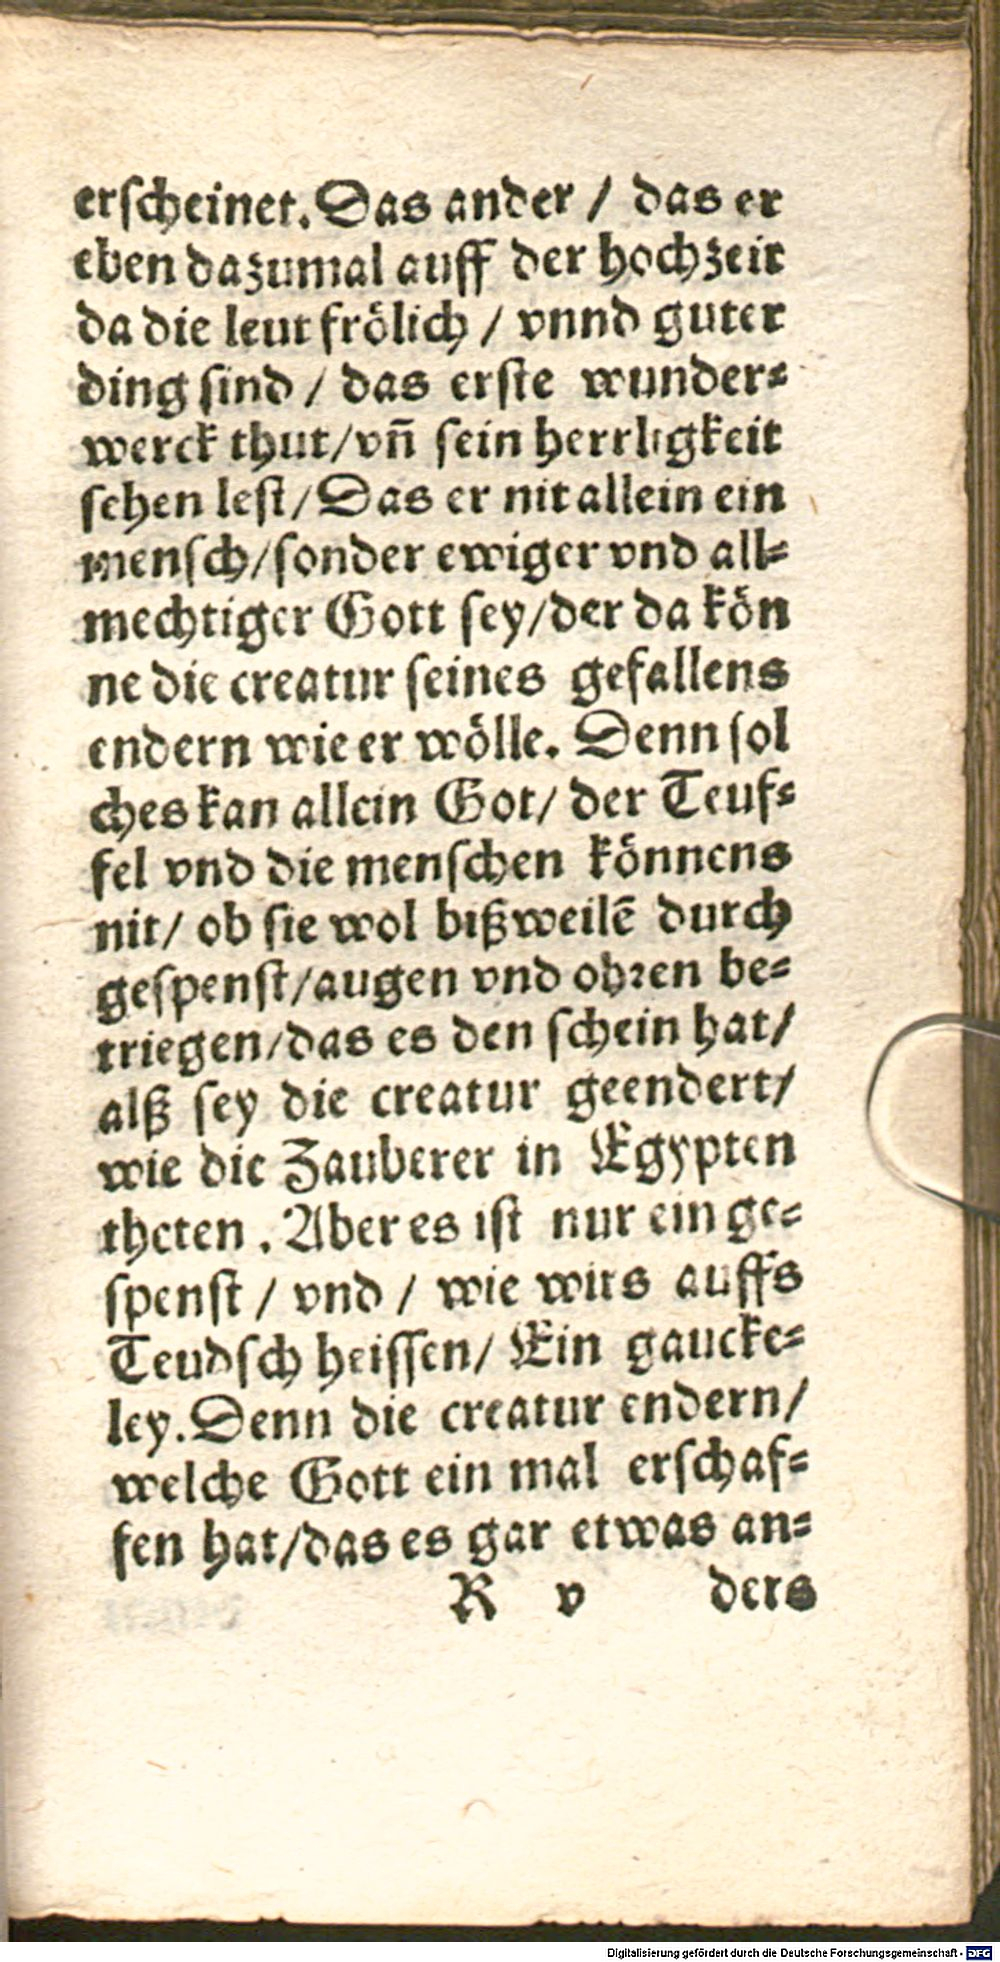 erscheinet. Das ander / das er
eben dazumal auff der hochzeit
da die leut frölich / vnnd guter
ding sind / das erste wunder-
werck thut / vñ sein herrligkeit
sehen lest / Das er nit allein ein
mensch / sonder ewiger vnd all-
mechtiger Gott sey / der da kön
ne die creatur seines gefallens
endern wie er wölle. Denn sol
ches kan allein Got / der Teuf-
fel vnd die menschen könnens
nit / ob sie wol bißweilē durch
gespenst / augen vnd ohren be-
triegen / das es den schein hat /
alß sey die creatur geendert /
wie die Zauberer in Egypten
theten . Aber es ist nur ein ge-
spenst / vnd / wie wirs auffs
Teudsch heissen / Ein gaucke-
ley. Denn die creatur endern /
welche Gott ein mal erschaf-
fen hat / das es gar etwas an-
R v ders
Digitalisierung gefördert durch die Deutsche Forschungsgemeinschaft - DFG